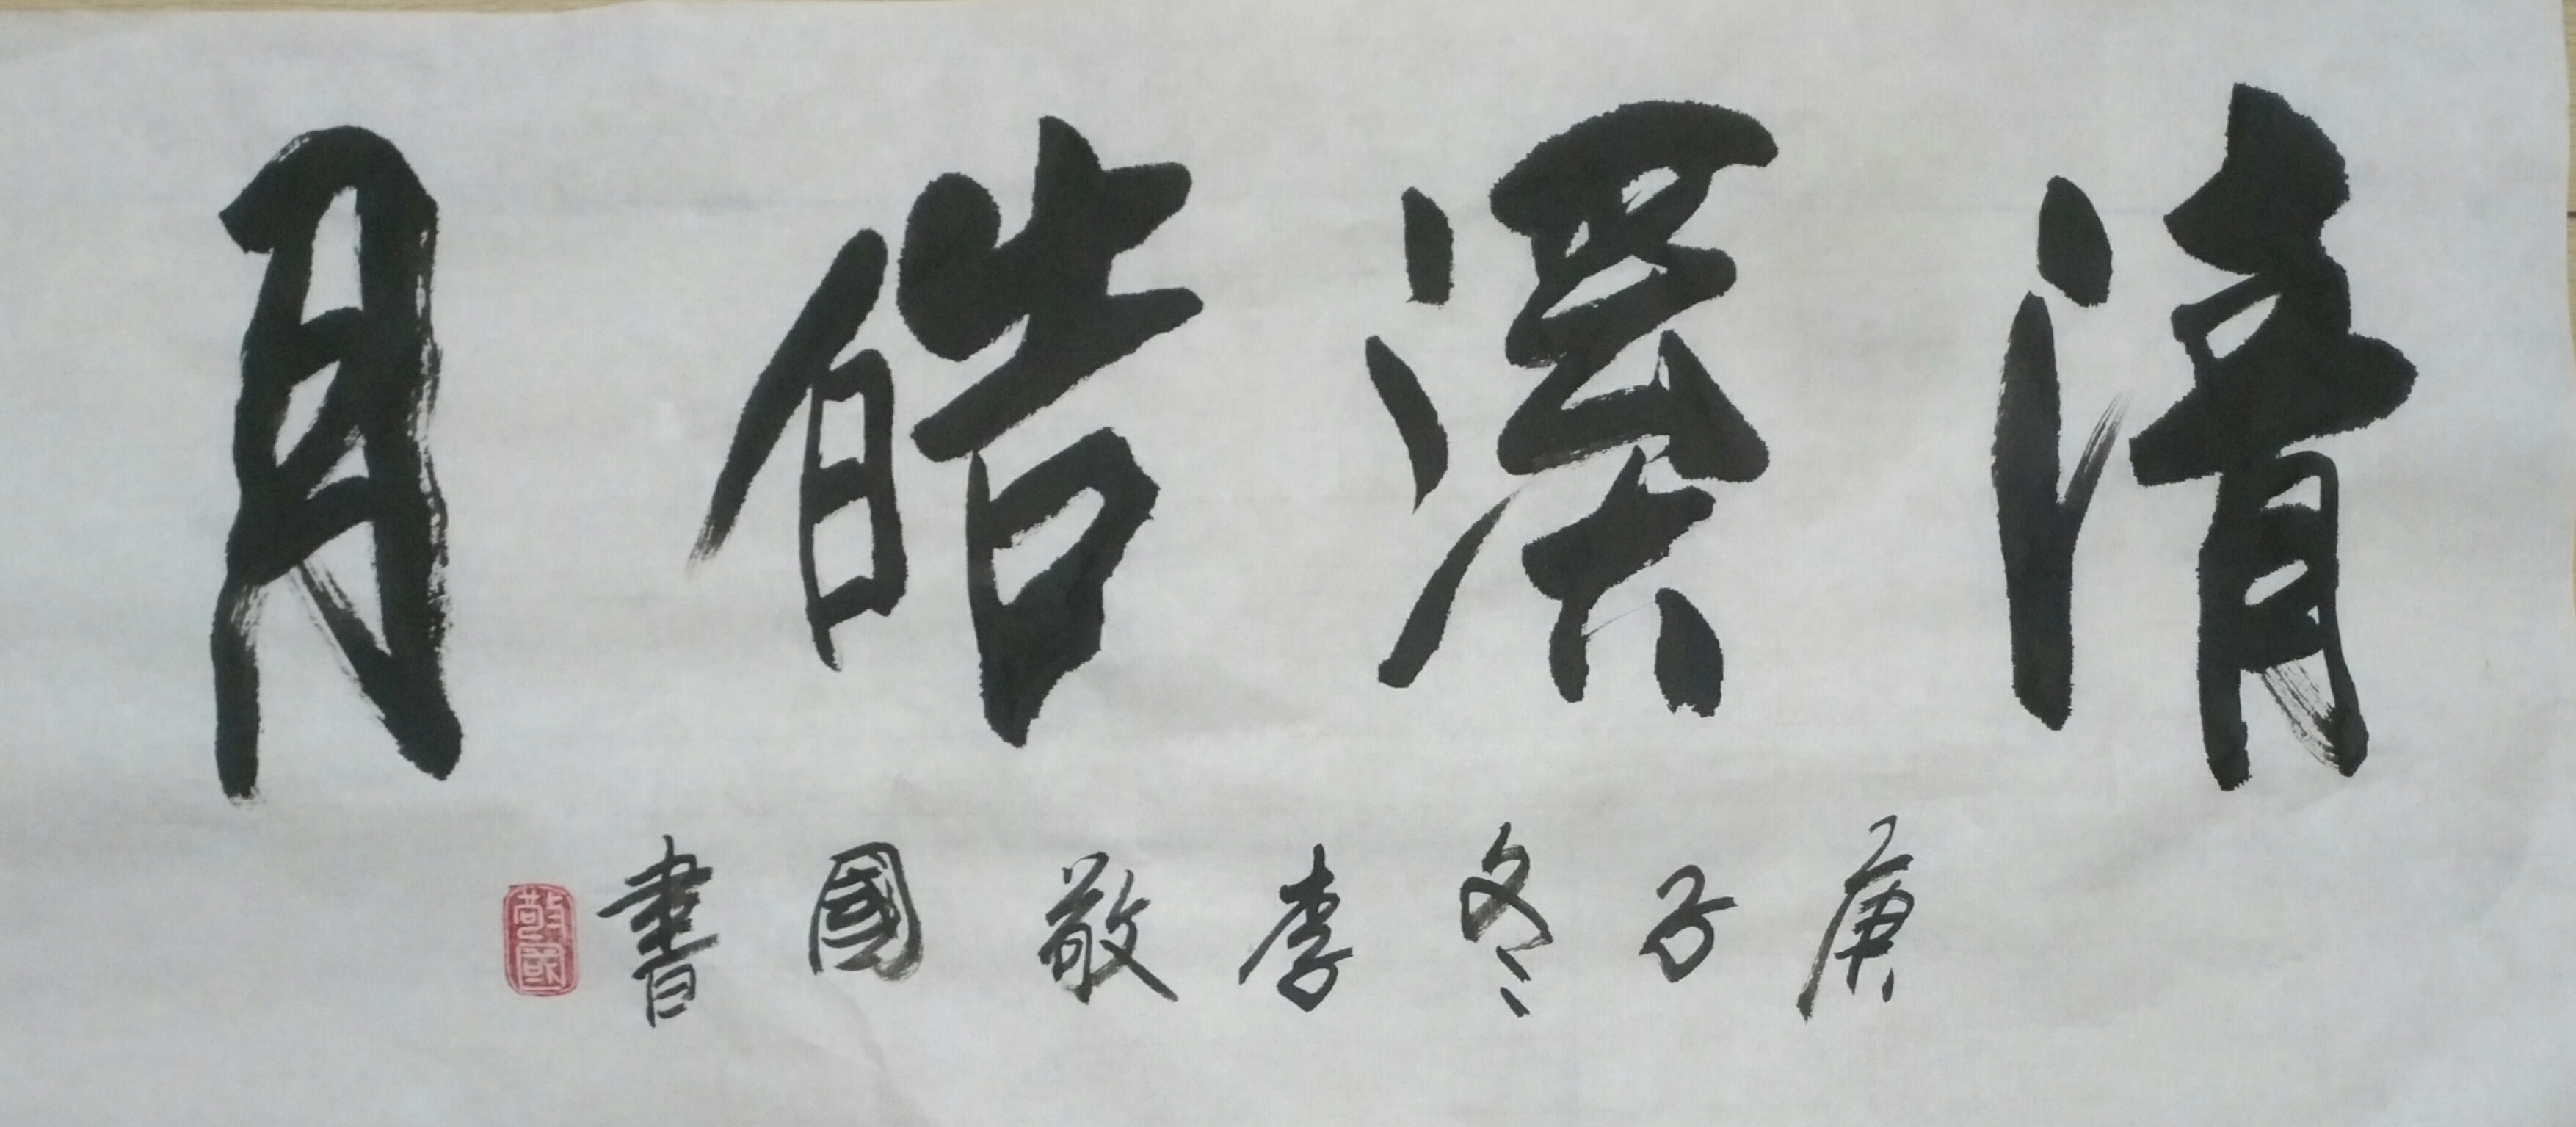 清溪皓月
庚子冬李敬國書
敬國